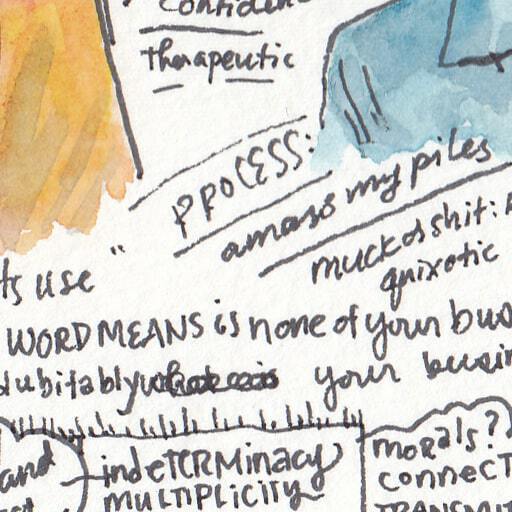 confiden
therapeutic
PROCESS:
amass my piles
muck of shit:
quixotic
ts use "
WORD MEANS is none of your bus
dubitably your busin
and
indeTERMinacy
MULTIPLICITY
morals?
CONNECT
TRANSMIT